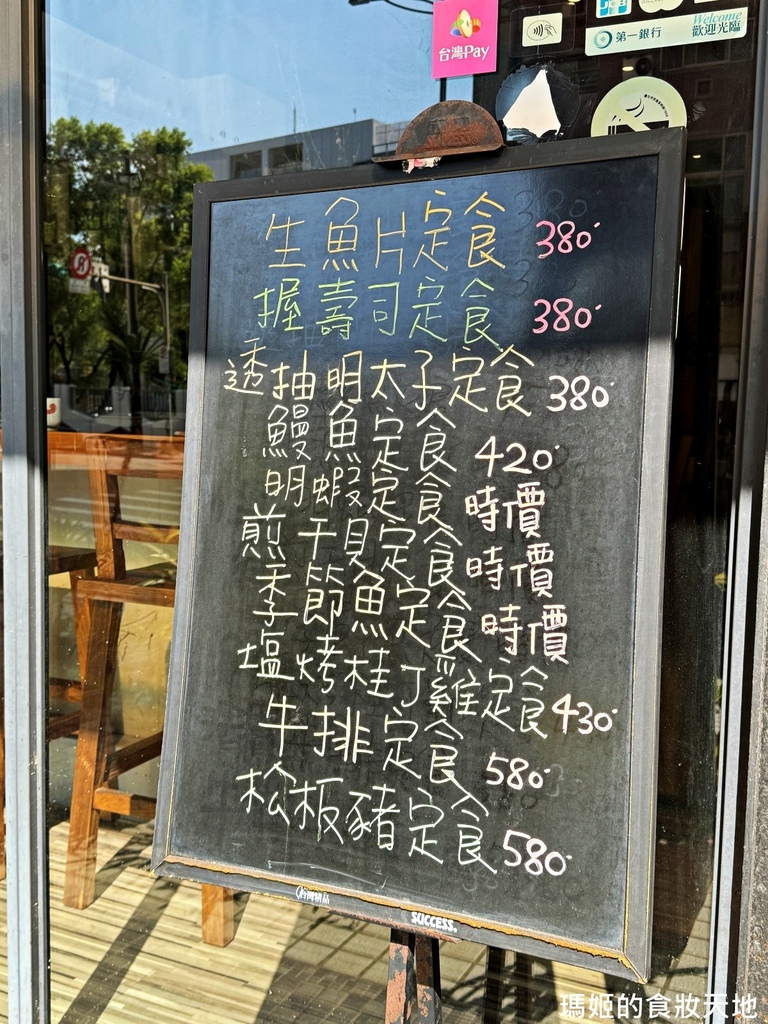 台灣Pay
第一銀行
Welcome
歡迎光臨
生魚片定食 380
握壽司定食 380
透抽明太子定食 380
鰻魚定食 420
明蝦定食 時價
煎干貝定食 時價
季節魚定食 時價
塩烤桂丁雞定食 430
牛排定食 580
松板豬定食 580
SUCCESS.
瑪姬的食妝天地